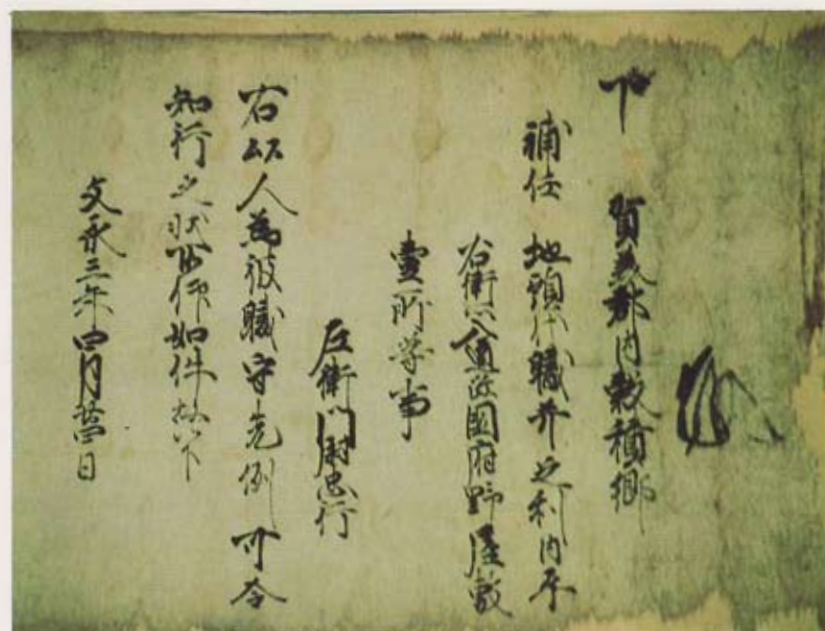 下　賀美郡内穀積郷
補任　地頭代職并足利内平
右衛門入道跡国府野屋敷
壹所等事
左衛門尉忠行
右以人為彼職守先例可令
知行之状所仰如件以下
文永三年四月廿四日